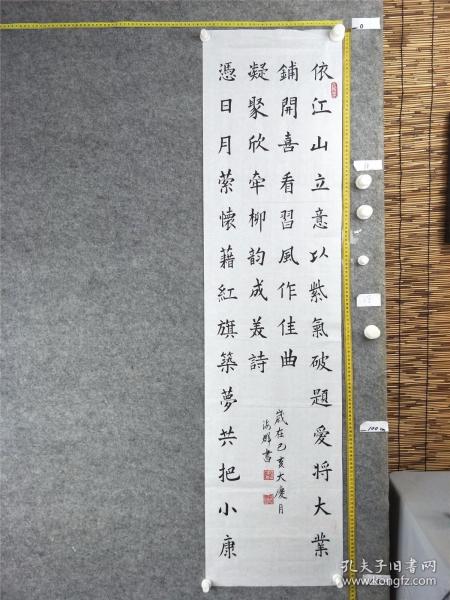 依江山立意以紫氣破題愛將大業
鋪開喜看習風作佳曲
憑日月萦懷藉紅旗築夢共把小康
凝聚欣牵柳韵成美詩
歲在己亥大慶月
書
0
100cm
孔夫子旧书网
www.kongfz.com